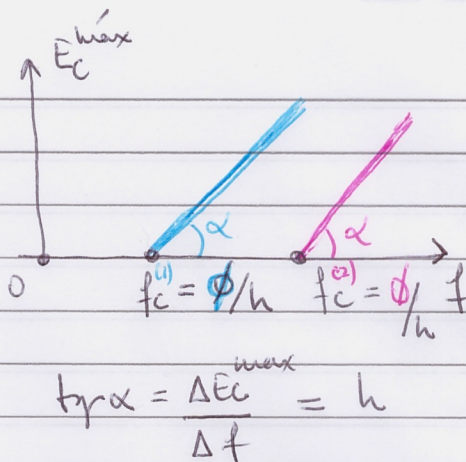 E_C^máx
α α
0 f_C^(1) = ϕ/h f_C^(2) = ϕ/h f
tg α = ΔE_C^max / Δf = h